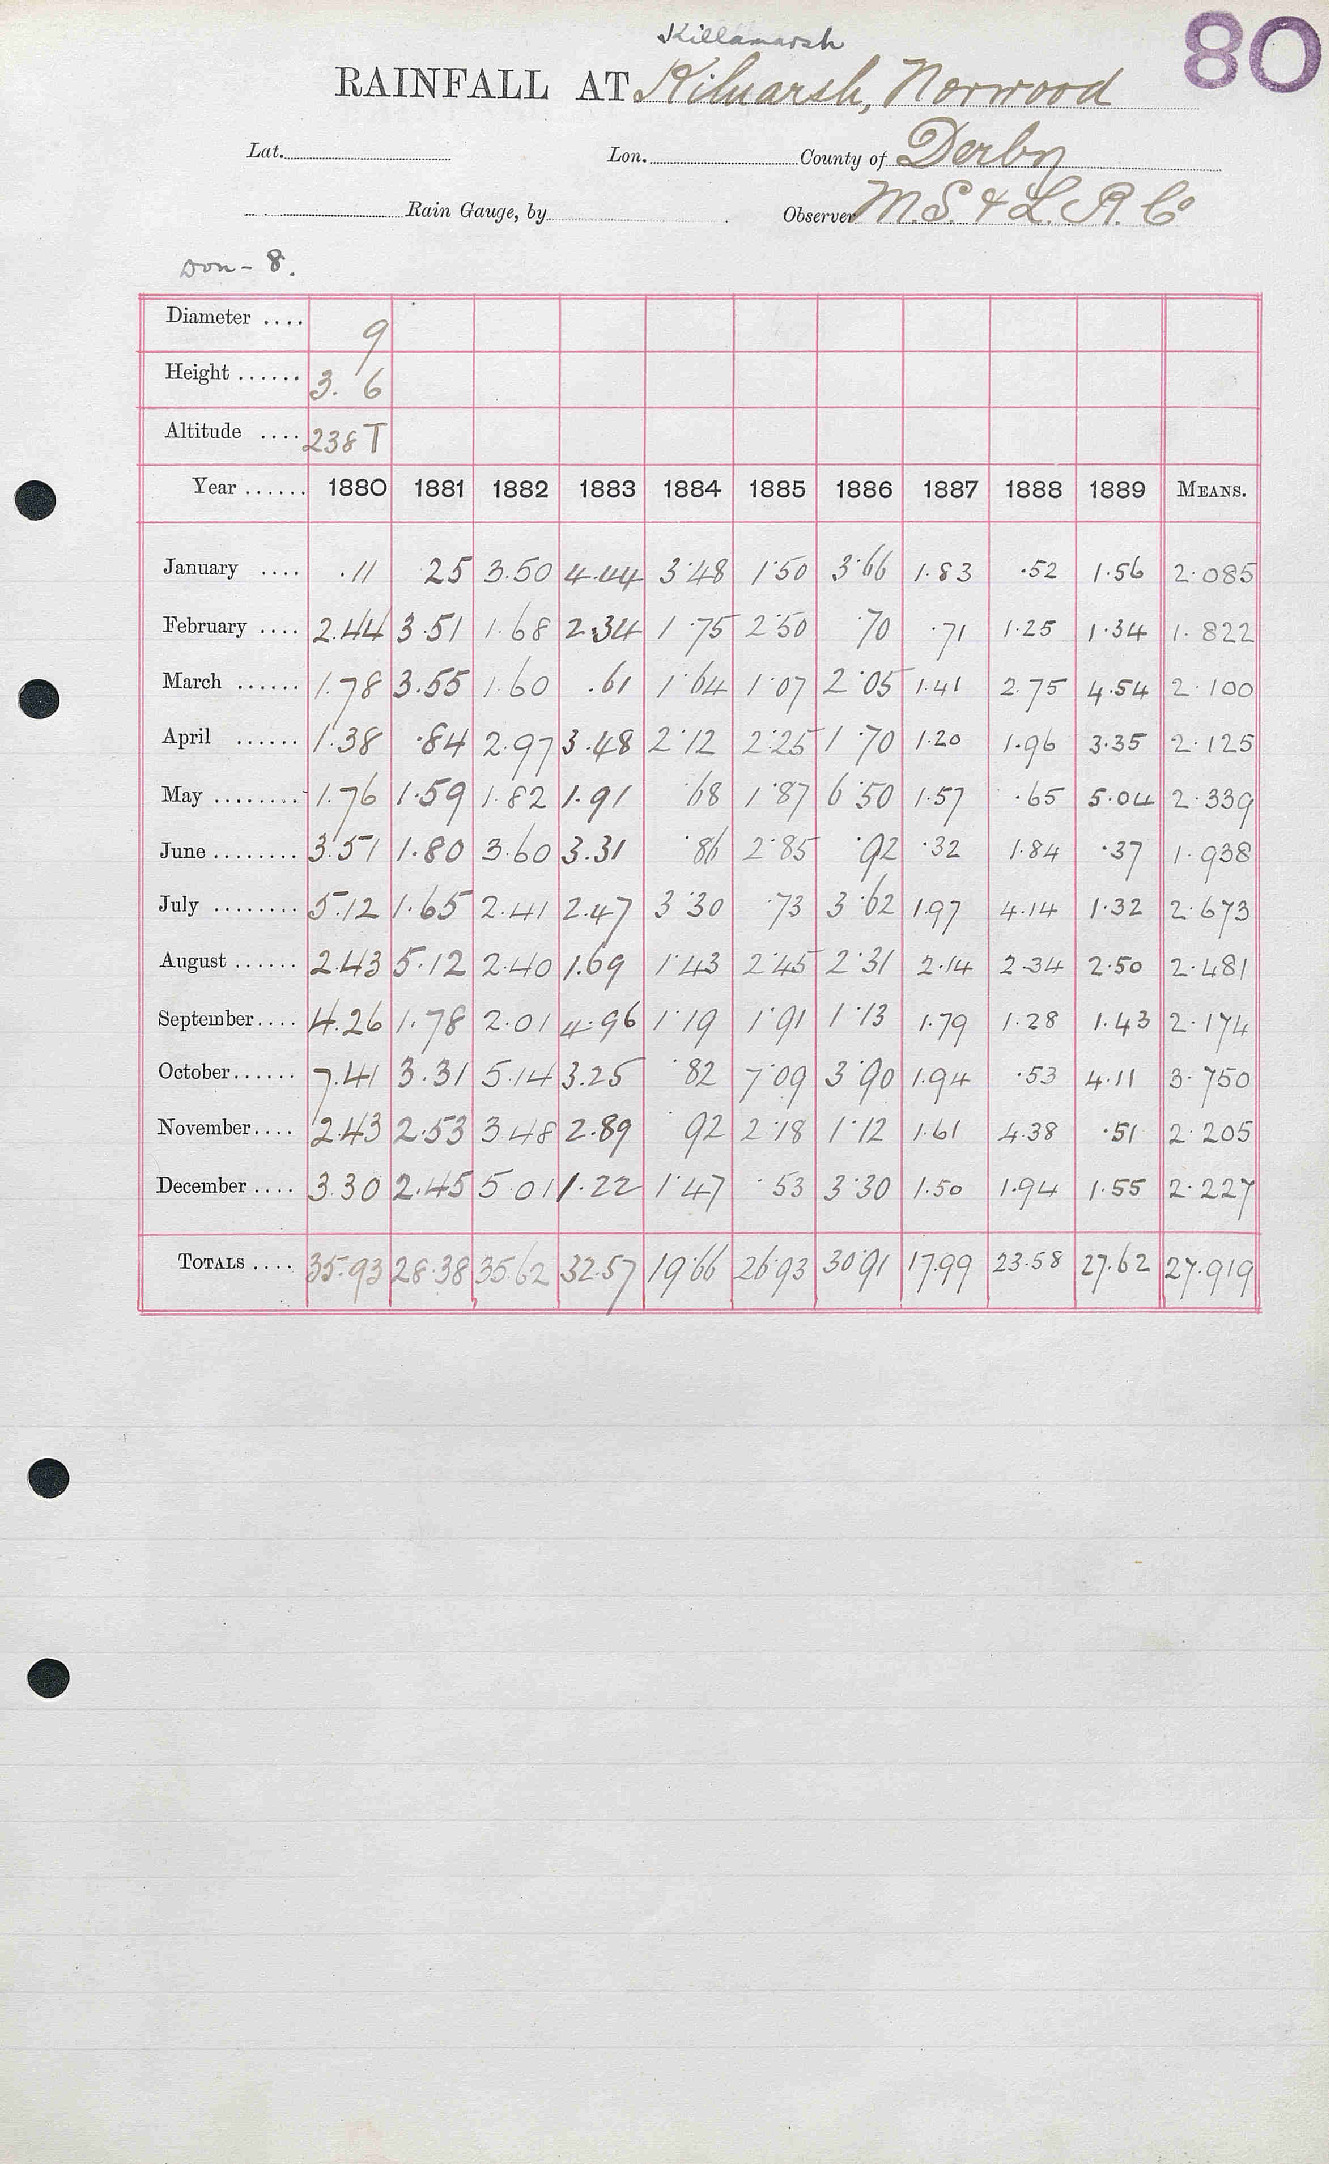 Killamarsh
80
RAINFALL AT Kilnarsh, Norwood
Lat. Lon. County of Derby
Rain Gauge, by Observer M. S. & L. R. Co
Don - 8.
Diameter .... 9
Height ...... 3. 6
Altitude .... 238 T
Year ...... 1880 1881 1882 1883 1884 1885 1886 1887 1888 1889 MEANS.
January .... .11 .25 3.50 4.44 3.48 1.50 3.66 1.83 .52 1.56 2.085
February .... 2.44 3.51 1.68 2.34 1.75 2.50 .70 .71 1.25 1.34 1.822
March ...... 1.78 3.55 1.60 .61 1.64 1.07 2.05 1.41 2.75 4.54 2.100
April ...... 1.38 .84 2.97 3.48 2.12 2.25 1.70 1.20 1.96 3.35 2.125
May ........ 1.76 1.59 1.82 1.91 .68 1.87 6.50 1.57 .65 5.04 2.339
June ........ 3.51 1.80 3.60 3.31 .86 2.85 .92 .32 1.84 .37 1.938
July ........ 5.12 1.65 2.41 2.47 3.30 .73 3.62 1.97 4.14 1.32 2.673
August ...... 2.43 5.12 2.40 1.69 1.43 2.45 2.31 2.14 2.34 2.50 2.481
September .... 4.26 1.78 2.01 4.96 1.19 1.91 1.13 1.79 1.28 1.43 2.174
October ...... 7.41 3.31 5.14 3.25 .82 7.09 3.90 1.94 .53 4.11 3.750
November .... 2.43 2.53 3.48 2.89 92 2.18 1.12 1.61 4.38 .51 2.205
December .... 3.30 2.45 5.01 1.22 1.47 .53 3.30 1.50 1.94 1.55 2.227
TOTALS .... 35.93 28.38 35.62 32.57 19.66 26.93 30.91 17.99 23.58 27.62 27.919